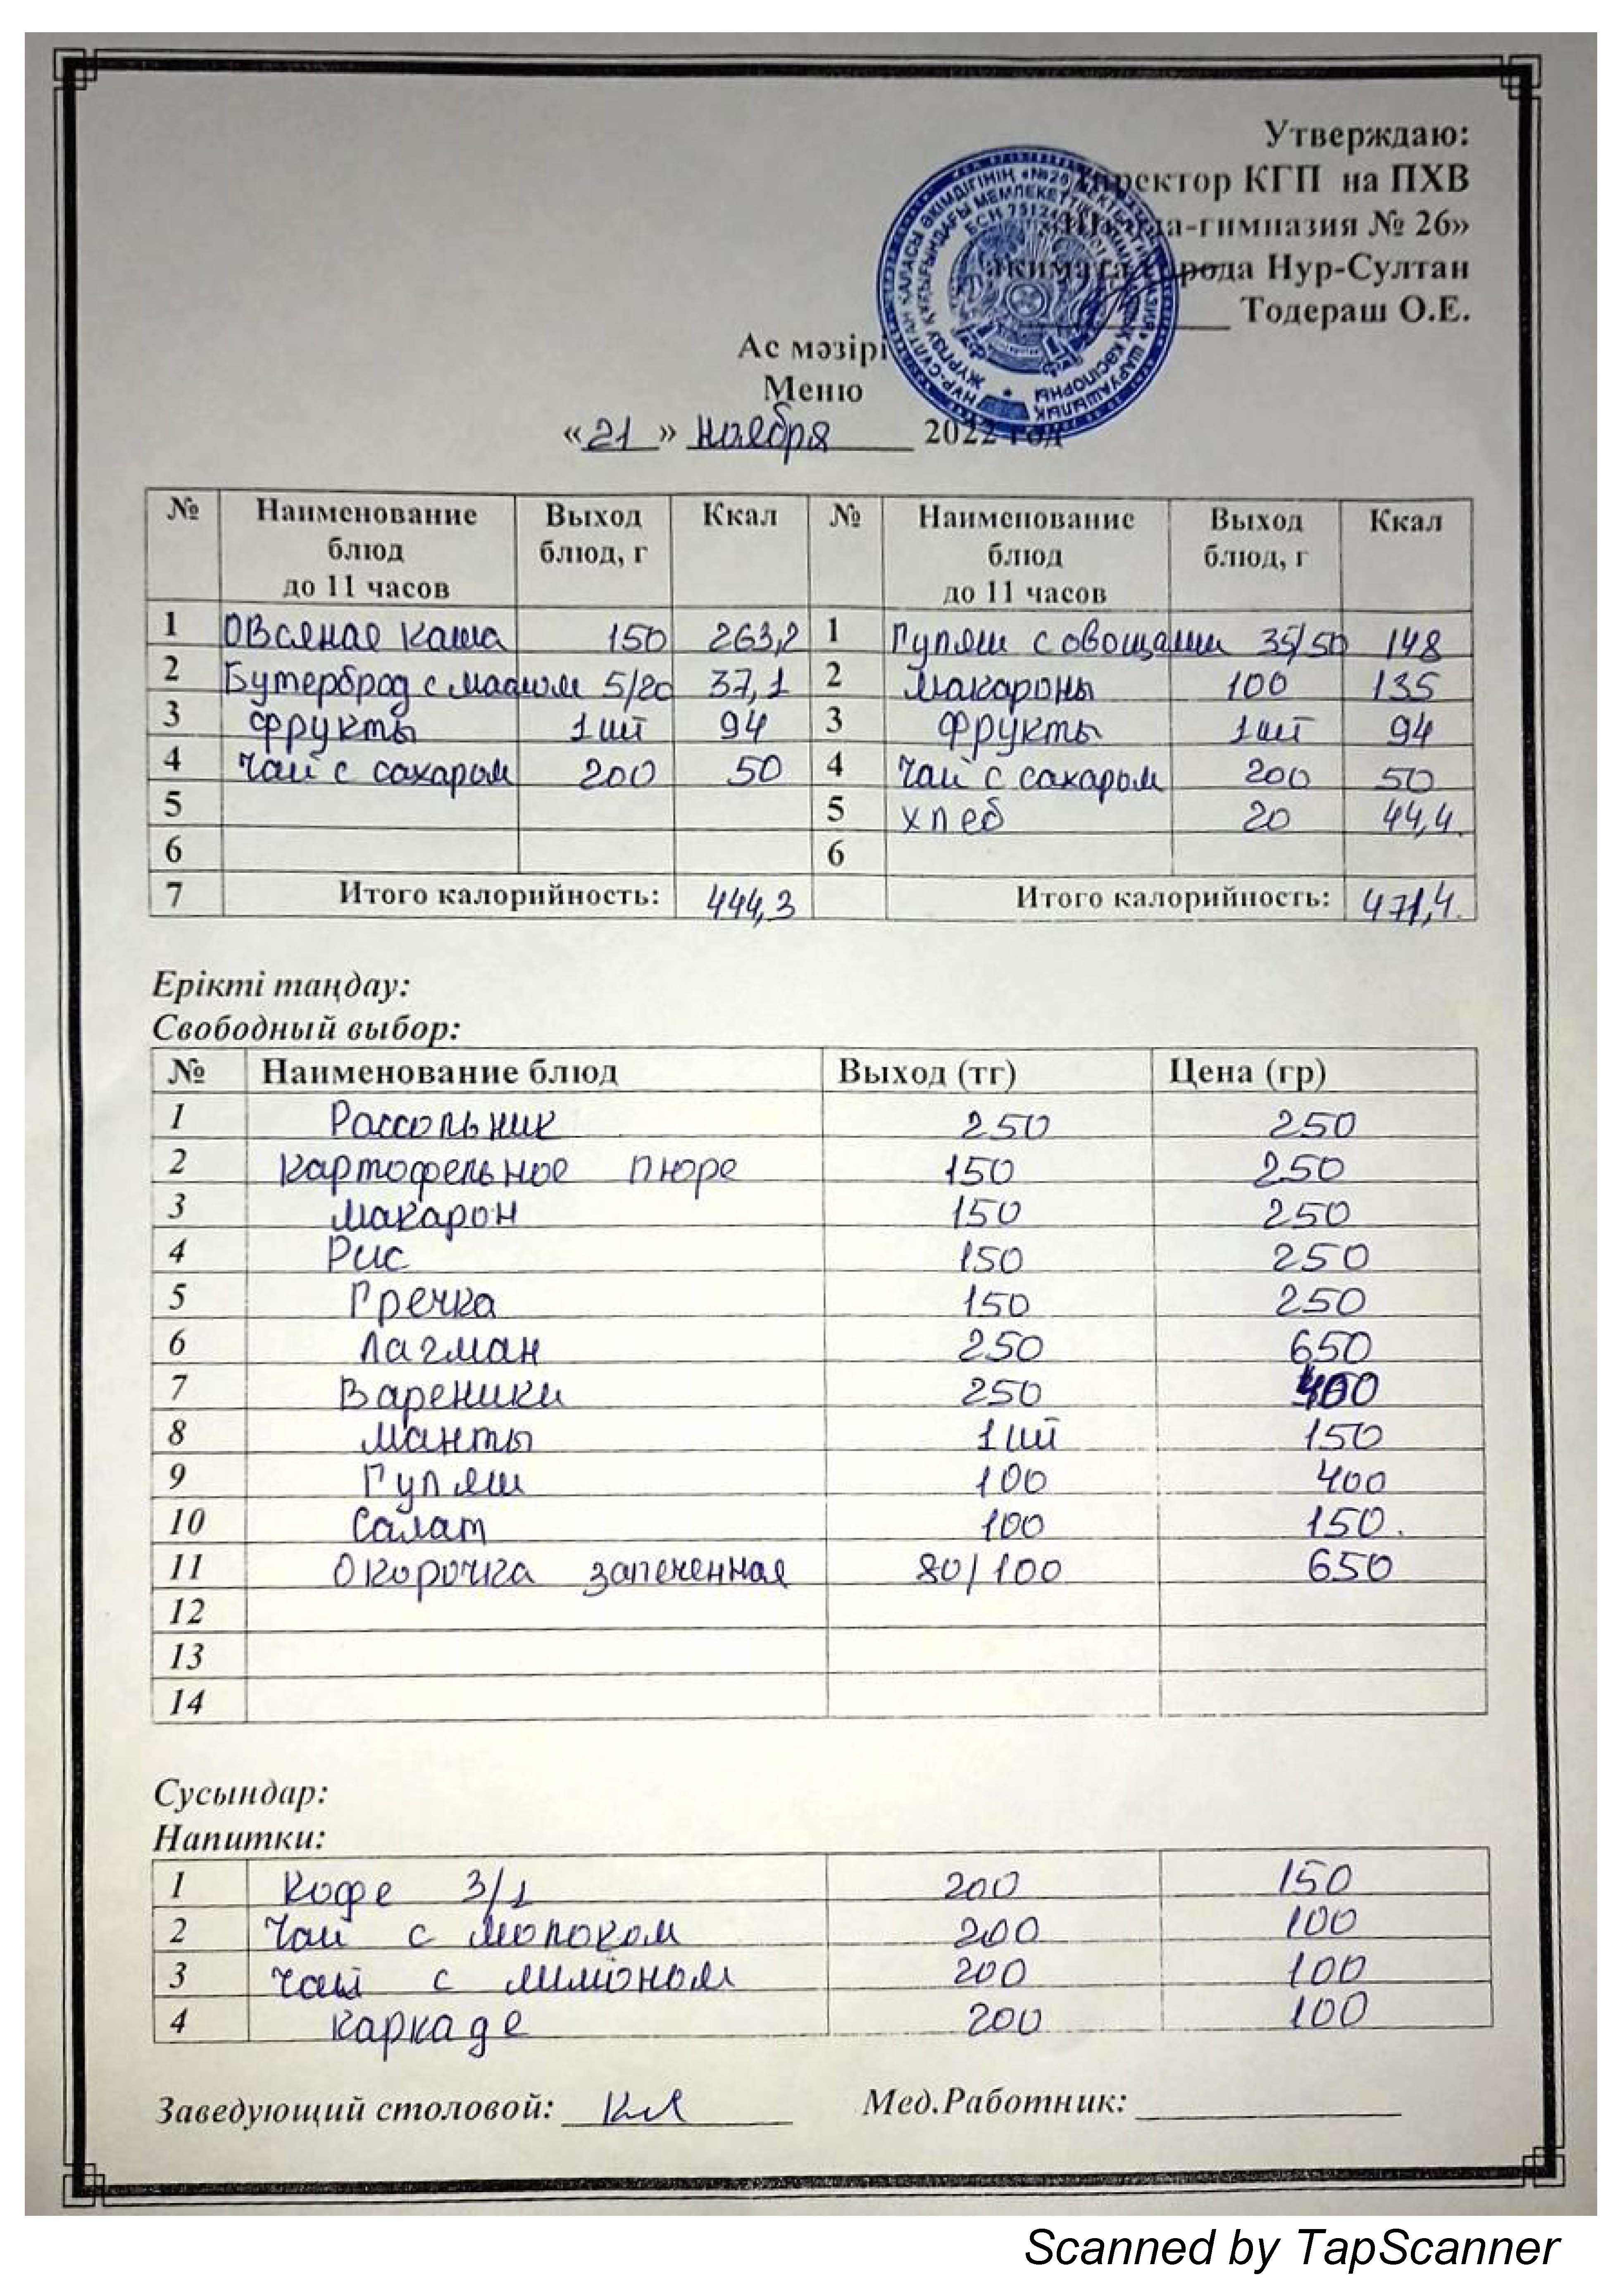 Утверждаю:
Директор КГП на ПХВ
«Школа-гимназия № 26»
акимата города Нур-Султан
Тодераш О.Е.
Ас мәзірі
Меню
«21» ноября 2022 год
№ Наименование блюд до 11 часов Выход блюд, г Ккал № Наименование блюд до 11 часов Выход блюд, г Ккал
1 Овсяная каша 150 263,2 1 Гуляш с овощами 35/50 148
2 Бутерброд с маслом 5/20 37,1 2 Макароны 100 135
3 Фрукты 1 шт 94 3 Фрукты 1 шт 94
4 Чай с сахаром 200 50 4 Чай с сахаром 200 50
5 5 хлеб 20 44,4.
6 6
7 Итого калорийность: 444,3 Итого калорийность: 471,4.
Ерікті таңдау:
Свободный выбор:
№ Наименование блюд Выход (тг) Цена (гр)
1 Рассольник 250 250
2 Картофельное пюре 150 250
3 Макарон 150 250
4 Рис 150 250
5 Гречка 150 250
6 Лагман 250 650
7 Вареники 250
8 Манты 1 шт 150
9 Гуляш 100 400
10 Салат 100 150.
11 Окорочка запеченная 80/100 650
12
13
14
Сусындар:
Напитки:
1 Кофе 3/1 200 150
2 Чай с молоком 200 100
3 Чай с лимоном 200 100
4 каркаде 200 100
Заведующий столовой: Мед.Работник:
Scanned by TapScanner